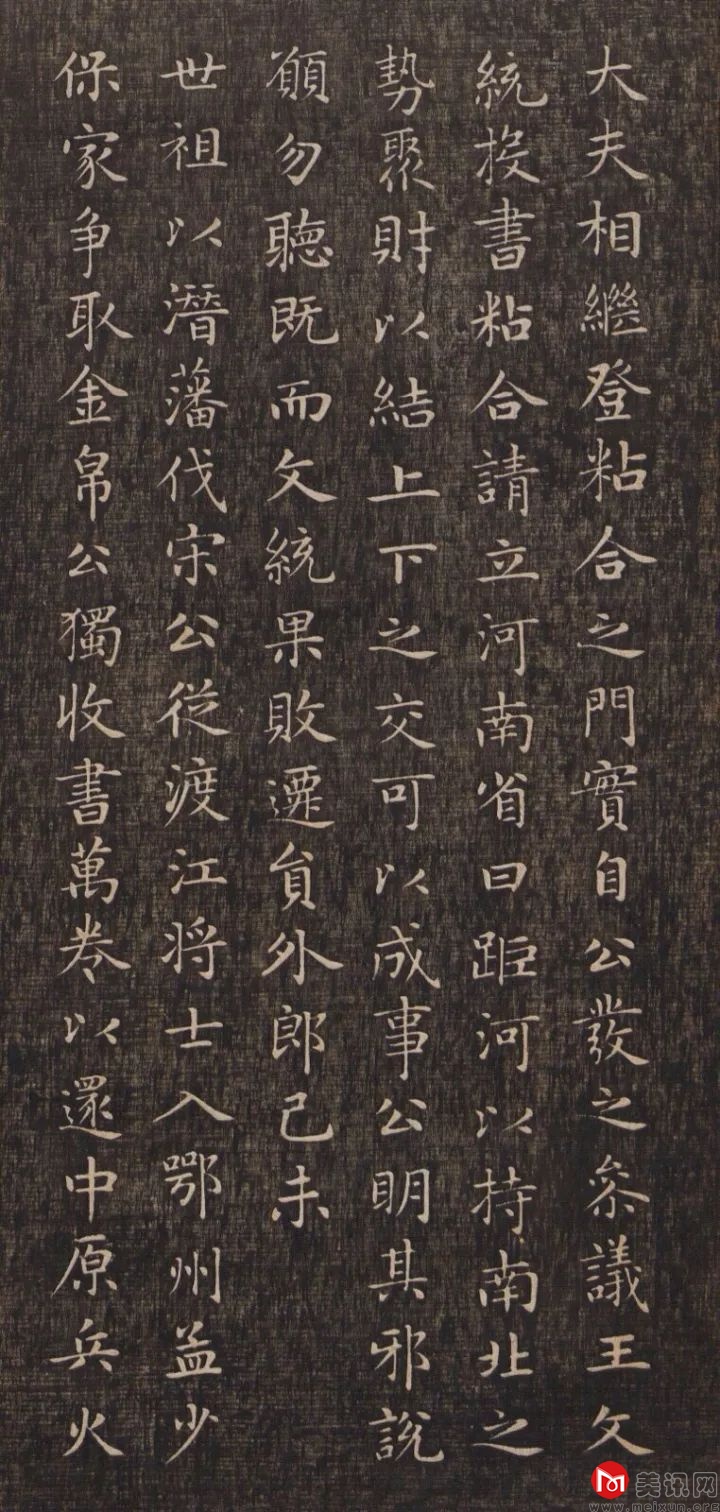 大夫相繼登粘合之門實自公發之叅議王文
統投書粘合請立河南省曰距河以持南北之
勢聚財以結上下之交可以成事公明其邪說
願勿聽既而文統果敗遷員外郎己未
世祖以潛藩伐宋公從渡江將士入鄂州孟少
保家争取金帛公獨收書萬卷以還中原兵火
美讯网
www.meixun.org